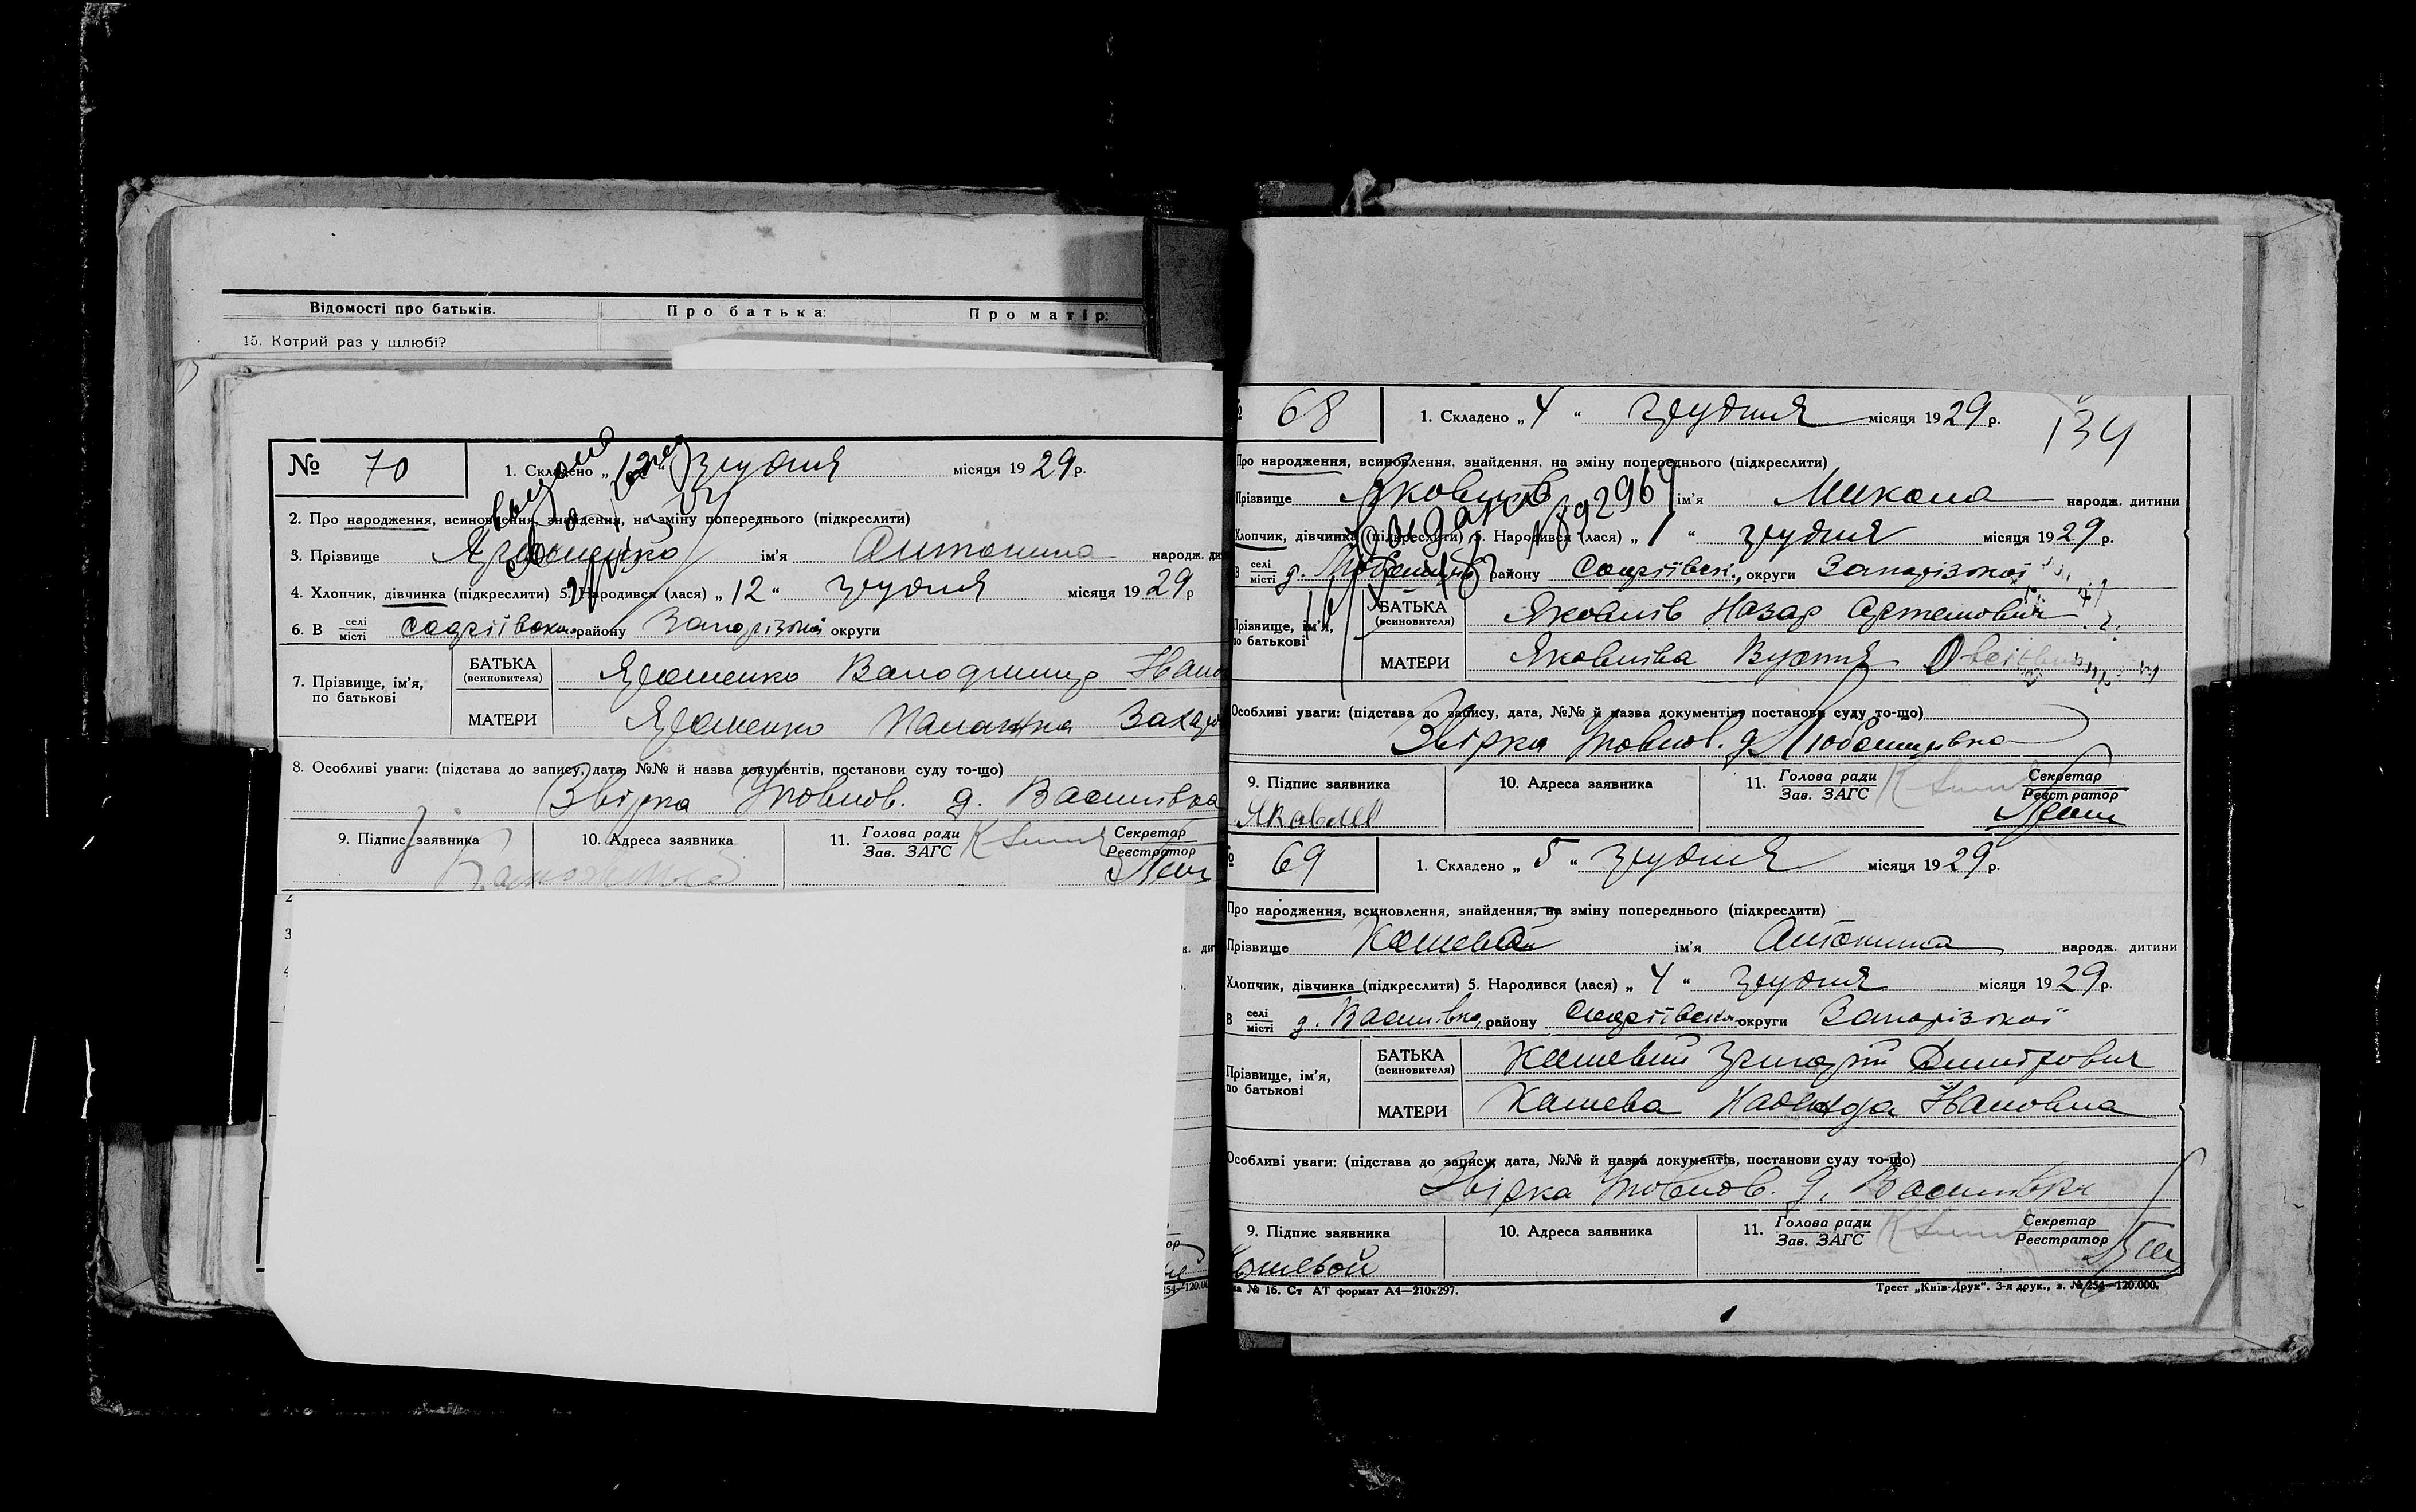 Відомості про батьків.
Про батька:
Про матір:
15. Котрий раз у шлюбі?
№ 70
1. Складено „12“ грудня місяця 1929 р.
2. Про народження, всиновлення, знайдення, на зміну попереднього (підкреслити)
3. Прізвище Ярошенко ім'я Антонина народж. ди
4. Хлопчик, дівчинка (підкреслити) 5. Народився (лася) „12“ грудня місяця 1929 р
6. В селі місті Софіївськ. району Запорізької округи
7. Прізвище, ім'я, по батькові
БАТЬКА (всиновителя) Ярошенко Володимир Івано
МАТЕРИ Ярошенко Палажка Захар
8. Особливі уваги: (підстава до запису, дата, №№ й назва документів, постанови суду то-що)
Звірка Уповнов. д. Василівка
9. Підпис заявника
10. Адреса заявника
11. Голова ради Зав. ЗАГС
Секретар Реєстратор
68
1. Складено „4“ грудня місяця 1929 р.
134
Про народження, всиновлення, знайдення, на зміну попереднього (підкреслити)
Прізвище Яковлів ім'я Микола народж. дитини
Хлопчик, дівчинка (підкреслити) 5. Народився (лася) „1“ грудня місяця 1929 р.
В селі місті д. Любашівка району Софіївськ. округи Запорізької
Прізвище, ім'я, по батькові
БАТЬКА (всиновителя) Яковлів Назар Артемович
МАТЕРИ Яковлева Вустя
Особливі уваги: (підстава до запису, дата, №№ й назва документів, постанови суду то-що)
Звірка Уповнов. д. Любашівка
9. Підпис заявника
10. Адреса заявника
11. Голова ради Зав. ЗАГС
Секретар Реєстратор
Яковлев
69
1. Складено „5“ грудня місяця 1929 р.
Про народження, всиновлення, знайдення, на зміну попереднього (підкреслити)
Прізвище Кошева ім'я Антонина народж. дитини
Хлопчик, дівчинка (підкреслити) 5. Народився (лася) „4“ грудня місяця 1929 р.
В селі місті д. Василівка, району Софіївськ. округи Запорізької
Прізвище, ім'я, по батькові
БАТЬКА (всиновителя) Кошевий Григорій Дмитрович
МАТЕРИ Кошева Надежда Івановна
Особливі уваги: (підстава до запису, дата, №№ й назва документів, постанови суду то-що)
Звірка Уповнов. д. Василівка
9. Підпис заявника
10. Адреса заявника
11. Голова ради Зав. ЗАГС
Секретар Реєстратор
Кошевой
№ 16. Ст АТ формат А4—210х297.
Трест „Київ-Друк“. 3-я друк., з. № 254—120.000.